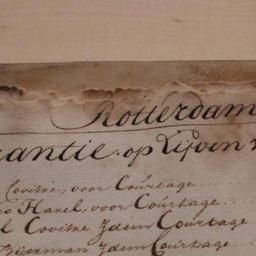 Rotterdam
rantie. op Lijven
Covitre, voor Courtage
o Hanel, voor Courtage
l Covitre Jdem Courtage
Bijerman Jdem Courtage